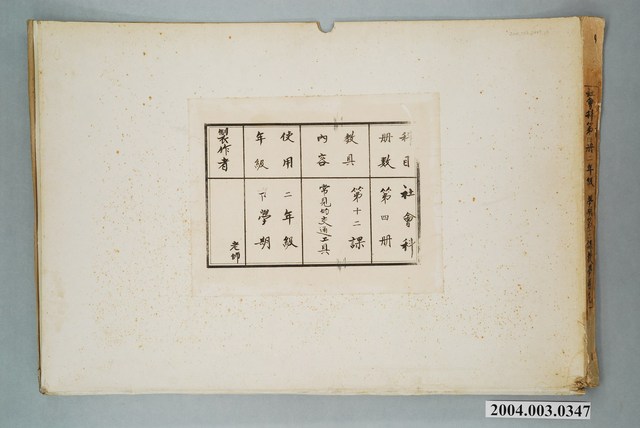 科目
社會科
册數
第四册
教具
內容
第十二課
常見的交通工具
使用
年級
二年級
下學期
製作者
老師
2004.003.0347